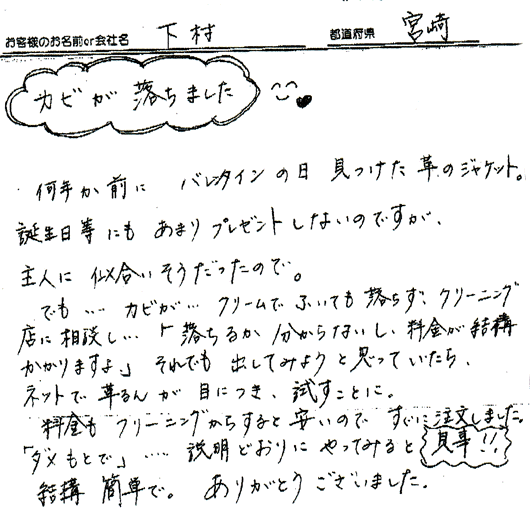 お客様のお名前or会社名 下村 都道府県 宮崎
カビが 落ちました
何年か前に バレンタインの日 見つけた 革のジャケット。
誕生日等にも あまり プレゼント しないのですが、
主人に 似合いそうだったので。
でも…… カビが… クリームで ふいても 落ちず、クリーニング
店に相談し…「落ちるか 分からないし、料金が 結構
かかりますよ」 それでも 出してみようと思っていたら、
ネットで 革るんが 目につき、試すことに。
料金も クリーニングからすると 安いので すぐに 注文しました。
「ダメもとで」…… 説明どおりに やってみると 見事!!
結構 簡単で。 ありがとう ございました。